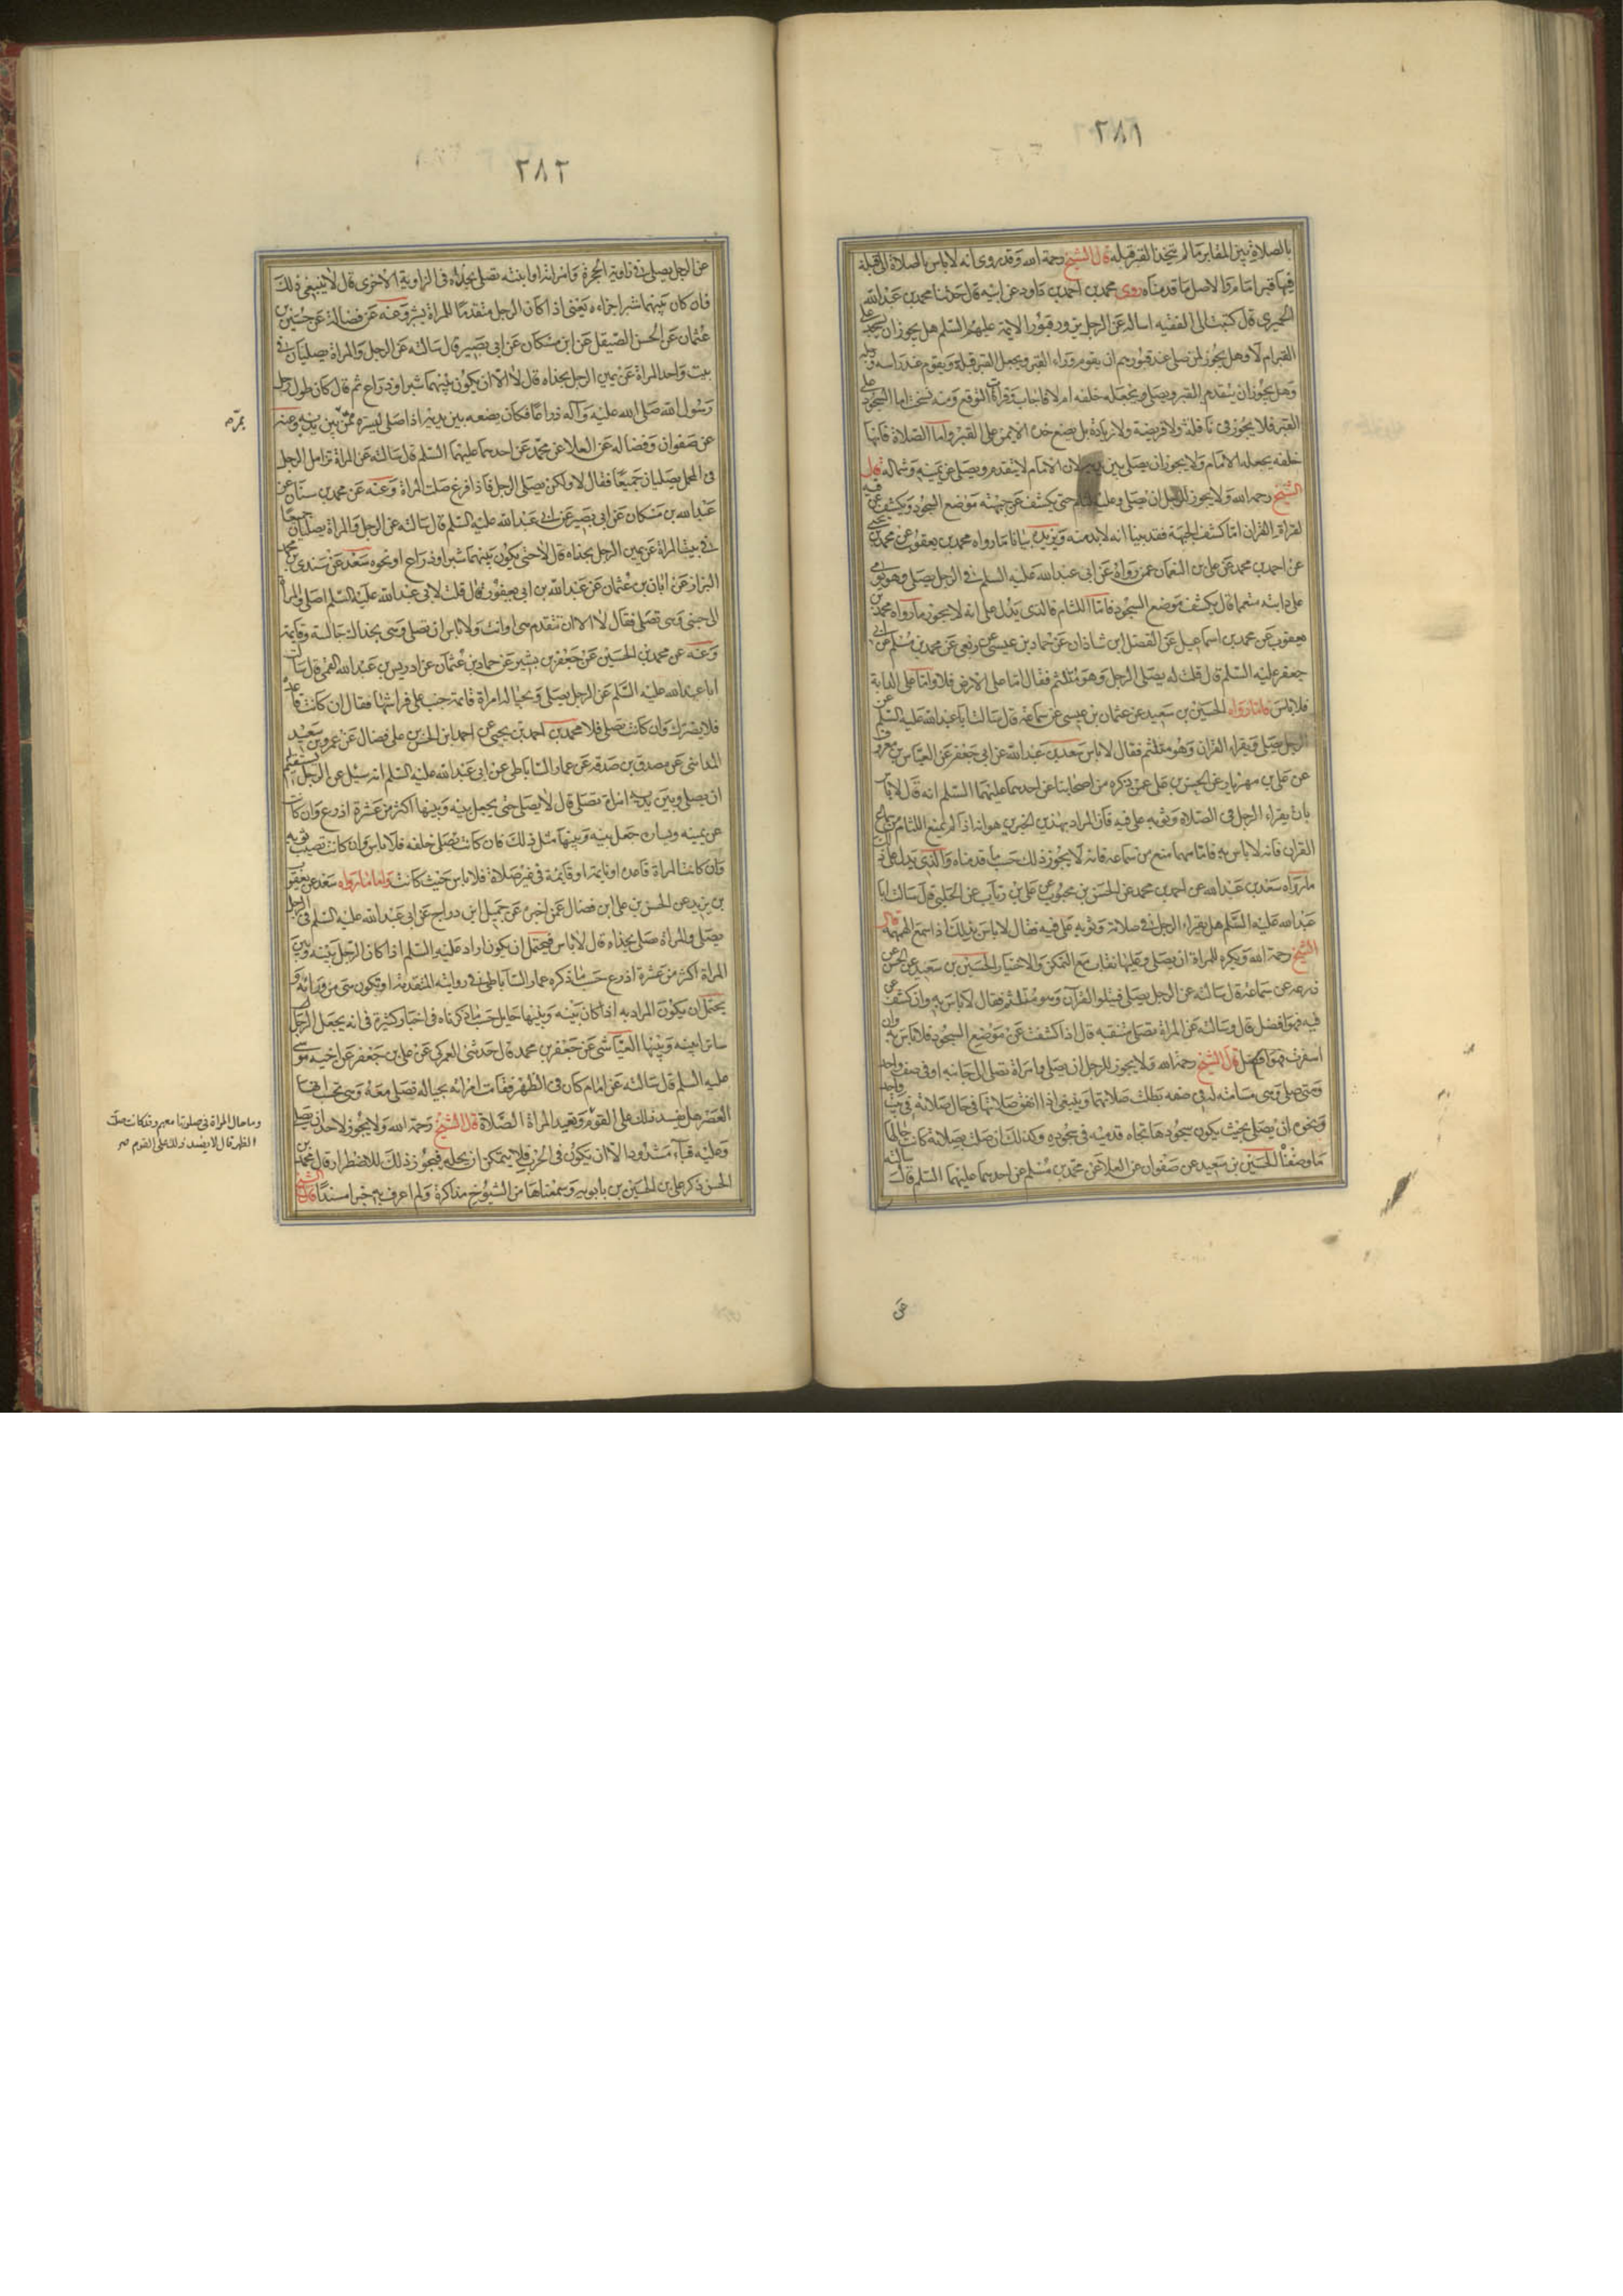 ٢٨١
بالصلاة بين المقابر ما لم يتخذ القبر قبله قال الشيخ رحمة الله وقد روى انه لا باس بالصلاة الى قبلة
فيها قبر امام والاصل ما قدمناه روى محمد بن احمد بن داود عن ابيه قال حدثنا محمد بن عبد الله
الحميرى قال كتبت الى الفقيه اساله عن الرجل يزور قبور الائمة عليهم السلم هل يجوز ان يسجد على
القبر ام لا وهل يجوز لمن صلى عند قبورهم ان يقوم وراء القبر ويجعل القبر قبلة ويقوم عند راسه ورجليه
وهل يجوز ان يتقدم القبر ويصلى ويجعله خلفه ام لا فاجاب وقرات التوقيع ومنه نسخت اما السجود على
القبر فلا يجوز فى نافلة ولا فريضة ولا زيادة بل يضع خده الايمن على القبر واما الصلاة فانها
خلفه يجعله الامام ولا يجوز ان يصلى بين يديه لان الامام لا يتقدم ويصلى عن يمينه وشماله قال
الشيخ رحمه الله ولا يجوز للرجل ان يصلى وعليه لثام حتى يكشف عن جبهته موضع السجود ويكشف عن فيه
لقراءة القران اما كشف الجبهة فقد بينا انه لابد منه ويزيده بيانا ما رواه محمد بن يعقوب عن محمد بن يحيى
عن احمد بن محمد عن على بن النعمان عمن رواه عن ابى عبد الله عليه السلم فى الرجل يصلى وهو يومى
على دابته متعمما قال يكشف موضع السجود فاما اللثام فالذى يدل على انه لا يجوز ما رواه محمد بن
يعقوب عن محمد بن اسماعيل عن الفضل ابن شاذان عن حماد بن عيسى عن ربعى عن محمد بن مسلم عن ابى
جعفر عليه السلم قال قلت له يصلى الرجل وهو متلثم فقال اما على الارض فلا واما على الدابة
فلا باس فاما ما رواه الحسين بن سعيد عن عثمان بن عيسى عن سماعة قال سالت ابا عبد الله عليه السلم عن
الرجل يصلى ويقراء القران وهو متلثم فقال لا باس سعد بن عبد الله عن ابى جعفر عن العباس بن معروف
عن على بن مهزيار عن الحسن بن على عمن ذكره من اصحابنا عن احدهما عليهما السلم انه قال لا باس
بان يقراء الرجل فى الصلاة وثوبه على فيه فان المراد بهذين الخبرين هو انه اذا لم يمنع اللثام من سماع
القران فانه لا باس به فاما مهما منع من سماعه فانه لا يجوز ذلك حسب ما قدمناه والذى يدل على ذلك
ما رواه سعد بن عبد الله عن احمد بن محمد عن الحسن بن محبوب عن على بن رئاب عن الحلبى قال سالت ابا
عبد الله عليه السلم هل يقراء الرجل فى صلاته وثوبه على فيه فقال لا باس بذلك اذا سمع الهمهمة قال
الشيخ رحمة الله ويكره للمراة ان يصلى وعليها نقاب مع التمكن والاختيار الحسين بن سعيد عن الحسن عن
زرعه عن سماعة قال سالته عن الرجل يصلى فيتلوا القرآن وهو متلثم فقال لا باس به وان كشف عن
فيه فهو افضل قال وسالته عن المراة تصلى متنقبه قال اذا كشفت عن موضع السجود فلا باس به وان
اسفرت فهو افضل قال الشيخ رحمة الله ولا يجوز للرجل ان يصلى وامراة تصلى الى جانبه او فى صف واحد
ومتى صلى وهى مسامتة له فى صفه بطلت صلاتهما وينبغى اذا اتفق صلاتها فى حال صلاته فى بيت واحد
ونحوه ان يصلى بحيث يكون سجودها تجاه قدميه فى سجوده وكذلك ان صلت بصلاته كانت حالها
ما وصفناه الحسين بن سعيد عن صفوان عن العلا عن محمد بن مسلم عن احدهما عليهما السلم قال سالته
عن
٢٨٢
عن الرجل يصلى فى زاوية الحجرة وامراته او ابنته تصلى بحذاه فى الزاوية الاخرى قال لا ينبغى ذلك
فان كان بينهما شبر اجزاءه يعنى اذا كان الرجل متقدما للمراة بشبر وعنه عن فضالة عن حسين بن
عثمان عن الحسن الصيقل عن ابن مسكان عن ابى بصير قال سالته عن الرجل والمراة يصليان فى
بيت واحد المراة عن يمين الرجل بحذاه قال لا الا ان يكون بينهما شبر او ذراع ثم قال كان طول رحل
رسول الله صلى الله عليه وآله ذراعا فكان يضعه بين يديه اذا صلى ليستره ممن بين يديه وعنه
عن صفوان وفضاله عن العلا عن محمد عن احدهما عليهما السلم قال سالته عن المراة تزامل الرجل
فى المحمل يصليان جميعا فقال لا ولكن يصلى الرجل فاذا فرغ صلت المراة وعنه عن محمد بن سنان عن
عبد الله بن مسكان عن ابى بصير عن ابى عبد الله عليه السلم قال سالته عن الرجل والمراة يصليان جميعا
فى بيت المراة عن يمين الرجل بحذاه قال لا حتى يكون بينهما شبر او ذراع او نحوه سعد عن سندى بن محمد
البزاز عن ابان بن عثمان عن عبد الله بن ابى يعفور قال قلت لابى عبد الله عليه السلم اصلى والمراة
الى جنبى وهى تصلى فقال لا الا ان تتقدم هى او انت ولا باس ان تصلى وهى بحذاك جالسة وقايمة
وعنه عن محمد بن الحسين عن جعفر بن بشير عن حماد بن عثمان عن ادريس بن عبد الله القمى قال سالت
ابا عبد الله عليه السلم عن الرجل يصلى وبحياله امراة قائمة جنب على فراشها فقال ان كانت قاعدة
فلا يضرك وان كانت تصلى فلا محمد بن احمد بن يحيى عن احمد ابن الحسن بن على فضال عن عمرو بن سعيد
المداينى عن مصدق بن صدقة عن عمار الساباطى عن ابى عبد الله عليه السلم انه سئل عن الرجل يستقيم له
ان يصلى وبين يديه امراة تصلى قال لا يصلى حتى يجعل بينه وبينها اكثر من عشرة اذرع وان كانت
عن يمينه ويساره جعل بينه وبينها مثل ذلك فان كانت تصلى خلفه فلا باس وان كانت تصيب ثوبه
وان كانت المراة قاعدة او نايمة او قايمة فى غير صلاة فلا باس حيث كانت واما ما رواه سعد عن يعقوب
بن يزيد عن الحسن بن على ابن فضال عمن اخبره عن جميل ابن دراج عن ابى عبد الله عليه السلم فى الرجل
يصلى والمراة تصلى بحذاه قال لا باس فيحتمل ان يكون اراد عليه السلم اذا كان الرجل بينه وبين
المراة اكثر من عشرة اذرع حسب ما ذكره عمار الساباطى فى روايته المتقدمة او تكون هى من ورائه و
يحتمل ان يكون المراد به اذا كان بينه وبينها حايل حسب ما ذكرناه فى اخبار كثيرة فى انه يجعل الرجل
ساترا بينه وبينها العياشى عن جعفر بن محمد قال حدثنى العمركى عن على بن جعفر عن اخيه موسى
عليه السلم قال سالته عن امام كان فى الظهر فقامت امراته بحياله تصلى معه وهى تحسب انها
العصر هل يفسد ذلك على القوم وتعيد المراة الصلاة قال الشيخ رحمة الله ولا يجوز لاحد ان يصلى
وعليه قباء مشدود الا ان يكون فى الحرب فلا يتمكن ان يحله فيجوز ذلك للاضطرار قال محمد بن
الحسن ذكر على بن الحسين بن بابويه وسمعناها من الشيوخ مذاكرة ولم اعرف به خبرا مسندا قال الشيخ
يمر
وما حال المراة فى صلوتها معهم وقد كانت صلت
الظهر قال لا يفسد ذلك على القوم